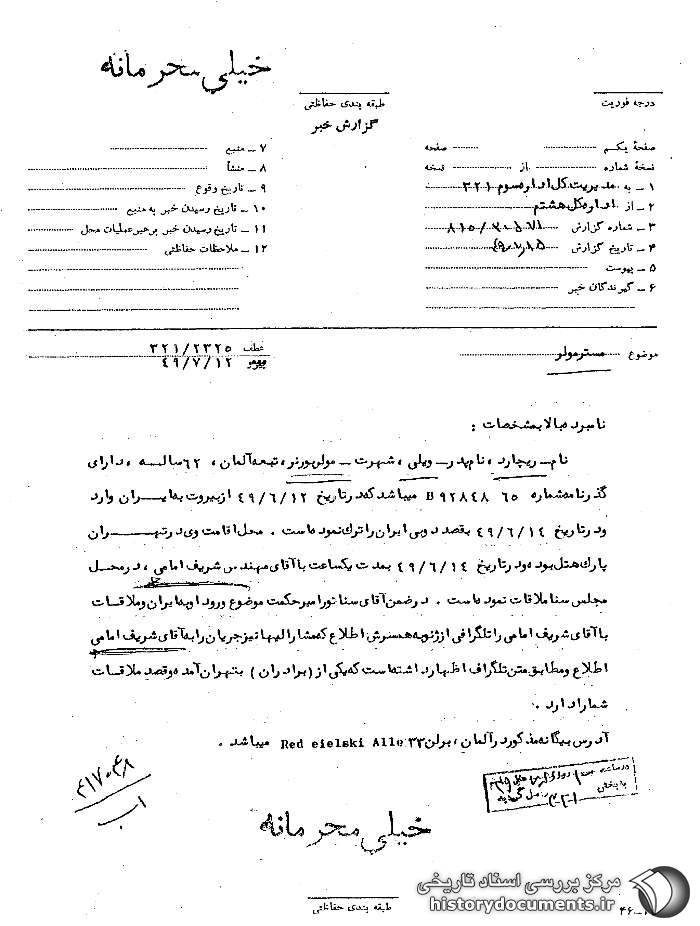 خیلی محرمانه
درجه فوریت
طبقه بندی حفاظتی
گزارش خبر
صفحهٔ یکم صفحه
نسخهٔ شماره از نسخه
۱ ـ به مدیریت کل اداره سوم ۳۲۱
۲ ـ از اداره کل هشتم
۳ ـ شماره گزارش
۴ ـ تاریخ گزارش
۵ ـ پیوست
۶ ـ گیرندگان خبر
۷ ـ منبع
۸ ـ منشأ
۹ ـ تاریخ وقوع
۱۰ ـ تاریخ رسیدن خبر به منبع
۱۱ ـ تاریخ رسیدن خبر برهبر عملیات محل
۱۲ ـ ملاحظات حفاظتی
موضوع مسترمولر
عطف ۳۲۱/۲۳۲۵
۴۹/۷/۱۲
نامبرده بالا بمشخصات :
نام ـ ریچارد ، نام پدر ـ ویلی ، شهرت ـ مولر بورنر ، تبعه آلمان ، ۶۲ ساله ، دارای
گذرنامه شماره ۶۵ ۹۲۸۴۸ B میباشد که در تاریخ ۴۹/۶/۱۲ از بیروت به ایران وارد
و در تاریخ ۴۹/۶/۱۴ بقصد دوبی ایران را ترک نموده است . محل اقامت وی در تهران
پارک هتل بوده و در تاریخ ۴۹/۶/۱۴ بمدت یکساعت با آقای مهندس شریف امامی ، در محل
مجلس سنا ملاقات نموده است . در ضمن آقای سناتور امیر حکمت موضوع ورود او به ایران و ملاقات
با آقای شریف امامی را تلگرافی از ژنو به همسرش اطلاع که مشارالیها نیز جریان را به آقای شریف امامی
اطلاع و مطابق متن تلگراف اظهار داشته است که یکی از ( برادران ) بتهران آمده و قصد ملاقات
شما را دارد .
آدرس بیگانه مذکور در آلمان ، برلن ۳۳ Red eielski Alle میباشد .
۴۱۷۰۴۸
خیلی محرمانه
طبقه بندی حفاظتی
مرکز بررسی اسناد تاریخی
historydocuments.ir